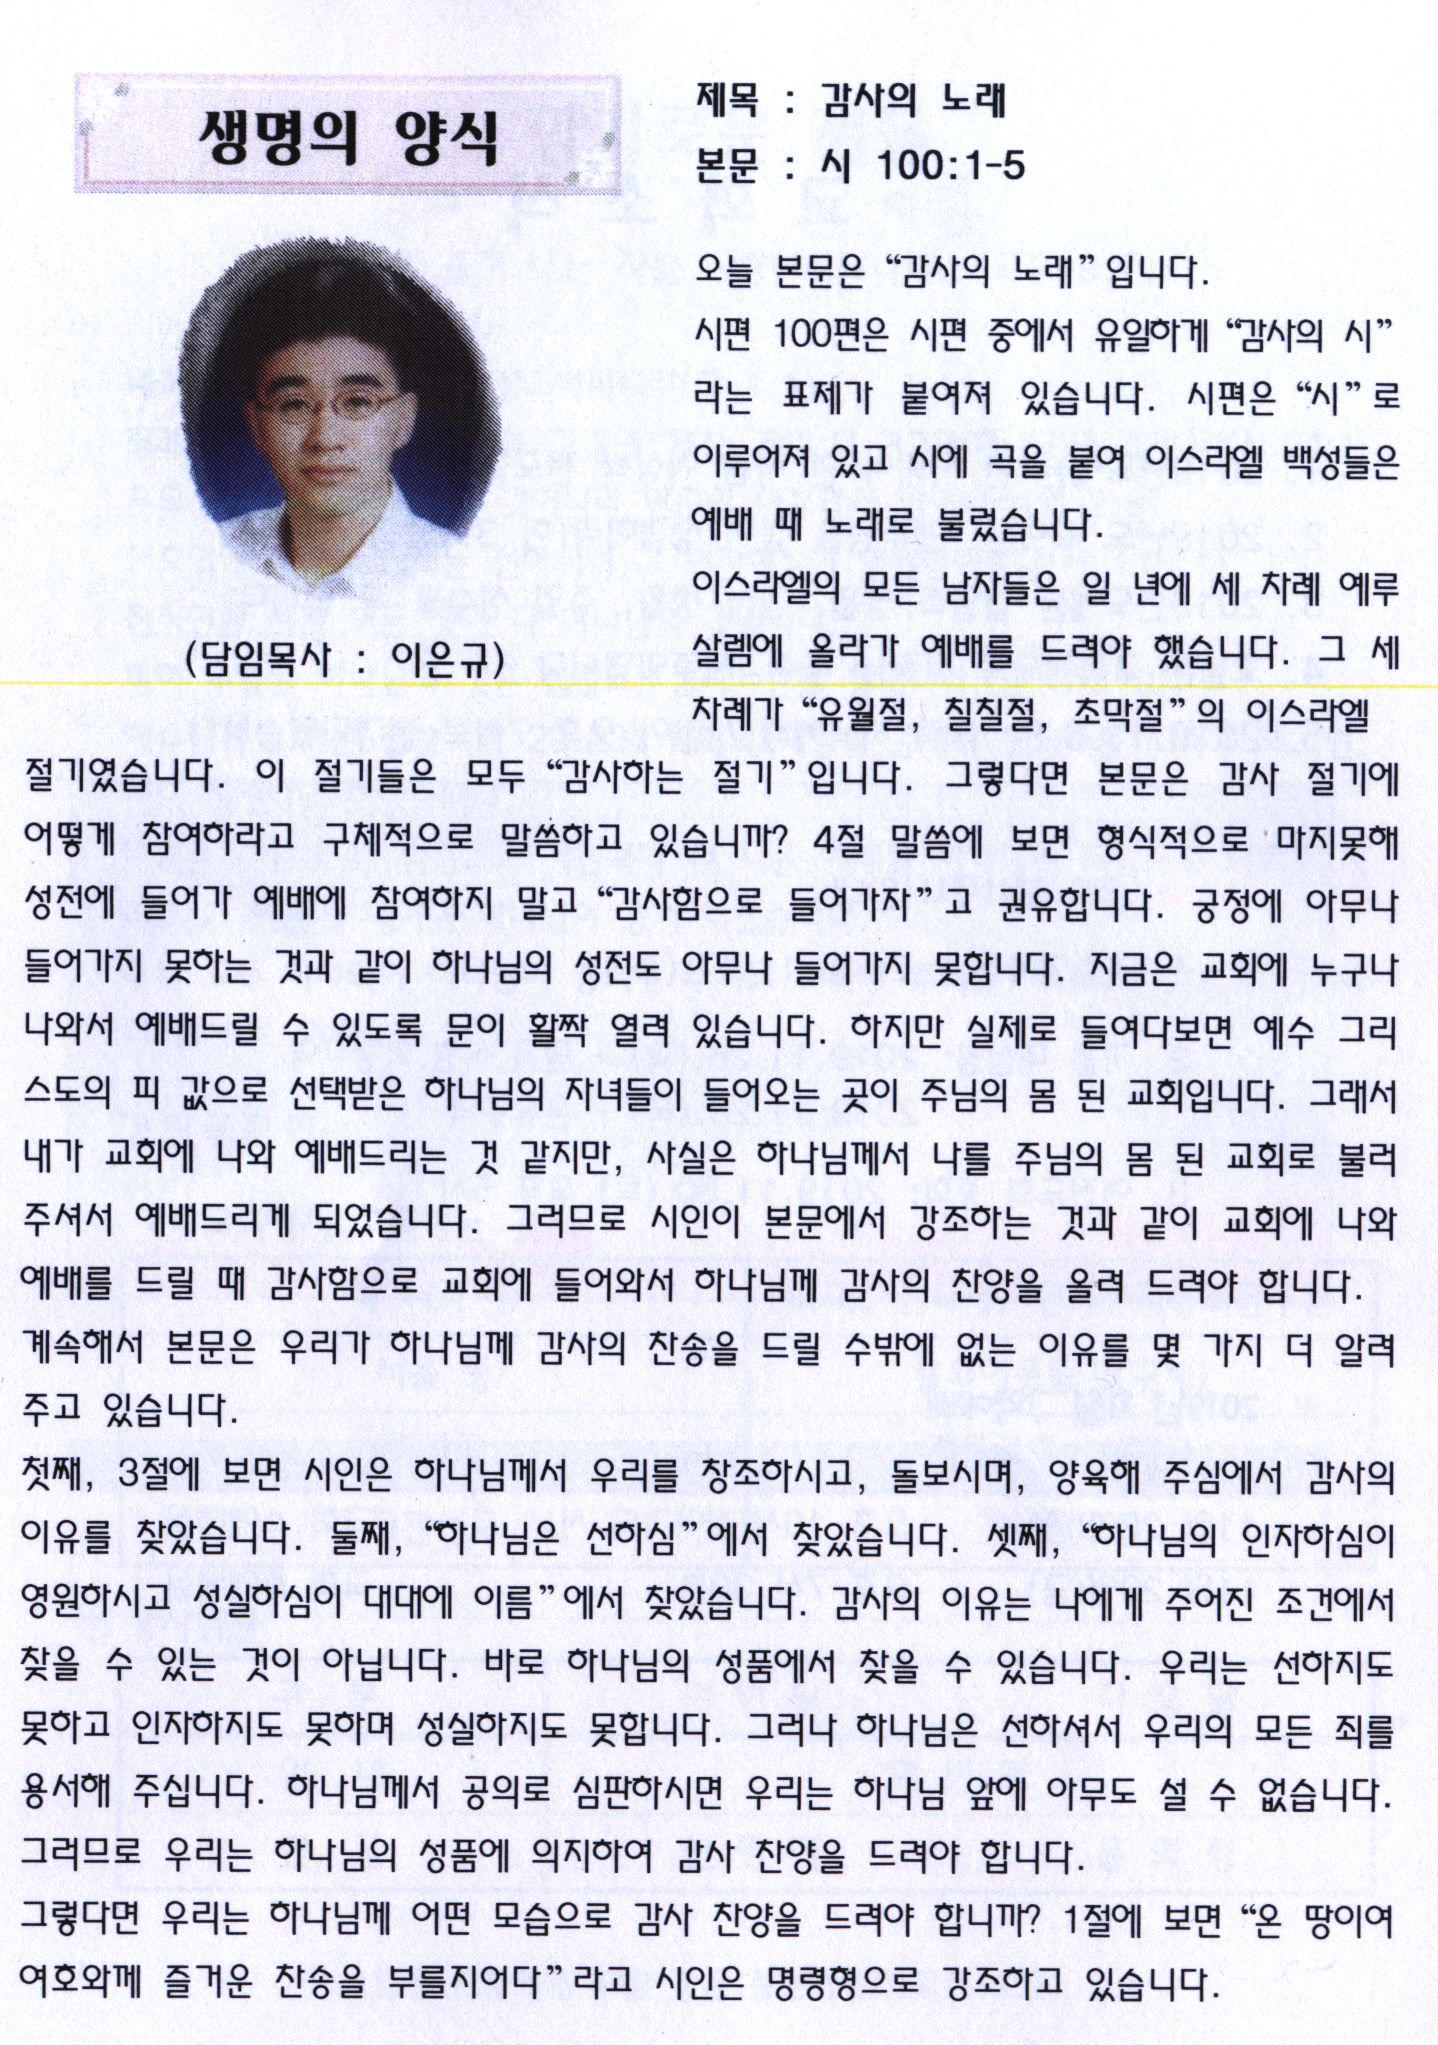 생명의 양식
제목 : 감사의 노래
본문 : 시 100:1-5
(담임목사 : 이은규)
오늘 본문은 “감사의 노래”입니다.
시편 100편은 시편 중에서 유일하게 “감사의 시”
라는 표제가 붙여져 있습니다. 시편은 “시”로
이루어져 있고 시에 곡을 붙여 이스라엘 백성들은
예배 때 노래로 불렀습니다.
이스라엘의 모든 남자들은 일 년에 세 차례 예루
살렘에 올라가 예배를 드려야 했습니다. 그 세
차례가 “유월절, 칠칠절, 초막절”의 이스라엘
절기였습니다. 이 절기들은 모두 “감사하는 절기”입니다. 그렇다면 본문은 감사 절기에
어떻게 참여하라고 구체적으로 말씀하고 있습니까? 4절 말씀에 보면 형식적으로 마지못해
성전에 들어가 예배에 참여하지 말고 “감사함으로 들어가자”고 권유합니다. 궁정에 아무나
들어가지 못하는 것과 같이 하나님의 성전도 아무나 들어가지 못합니다. 지금은 교회에 누구나
나와서 예배드릴 수 있도록 문이 활짝 열려 있습니다. 하지만 실제로 들여다보면 예수 그리
스도의 피 값으로 선택받은 하나님의 자녀들이 들어오는 곳이 주님의 몸 된 교회입니다. 그래서
내가 교회에 나와 예배드리는 것 같지만, 사실은 하나님께서 나를 주님의 몸 된 교회로 불러
주셔서 예배드리게 되었습니다. 그러므로 시인이 본문에서 강조하는 것과 같이 교회에 나와
예배를 드릴 때 감사함으로 교회에 들어와서 하나님께 감사의 찬양을 올려 드려야 합니다.
계속해서 본문은 우리가 하나님께 감사의 찬송을 드릴 수밖에 없는 이유를 몇 가지 더 알려
주고 있습니다.
첫째, 3절에 보면 시인은 하나님께서 우리를 창조하시고, 돌보시며, 양육해 주심에서 감사의
이유를 찾았습니다. 둘째, “하나님은 선하심”에서 찾았습니다. 셋째, “하나님의 인자하심이
영원하시고 성실하심이 대대에 이름”에서 찾았습니다. 감사의 이유는 나에게 주어진 조건에서
찾을 수 있는 것이 아닙니다. 바로 하나님의 성품에서 찾을 수 있습니다. 우리는 선하지도
못하고 인자하지도 못하며 성실하지도 못합니다. 그러나 하나님은 선하셔서 우리의 모든 죄를
용서해 주십니다. 하나님께서 공의로 심판하시면 우리는 하나님 앞에 아무도 설 수 없습니다.
그러므로 우리는 하나님의 성품에 의지하여 감사 찬양을 드려야 합니다.
그렇다면 우리는 하나님께 어떤 모습으로 감사 찬양을 드려야 합니까? 1절에 보면 “온 땅이여
여호와께 즐거운 찬송을 부를지어다”라고 시인은 명령형으로 강조하고 있습니다.